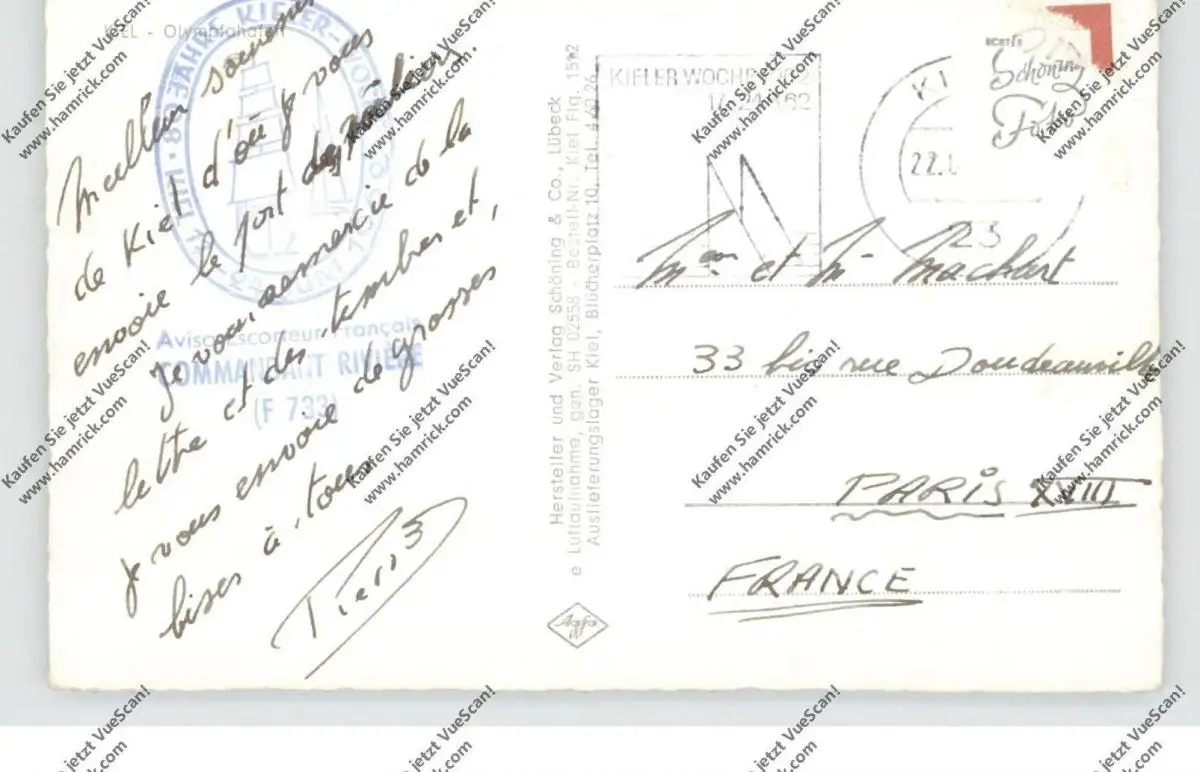 KIEL - Olympiahafen
Meilleur souvenir
de Kiel d'où je vous
envoie le port des voiliers.
je vous remercie de la
lettre et des timbres et,
je vous envoie de grosses
bises à tous
Aviso Escorteur Français
COMMANDANT RIVIÈRE
(F 733)
Hersteller und Verlag Schöning & Co., Lübeck
Luftaufnahme, gen. SH 02558 - Bestell-Nr. Kiel Flg. 1512
Auslieferungslager Kiel, Blücherplatz 10, Tel.
Agfa
KIELER WOCHE
22.
23
ECHTES
Schöning
Foto
et Mr
33 bis rue Doudeauville
PARIS XVIII
FRANCE
Kaufen Sie jetzt VueScan!
www.hamrick.com